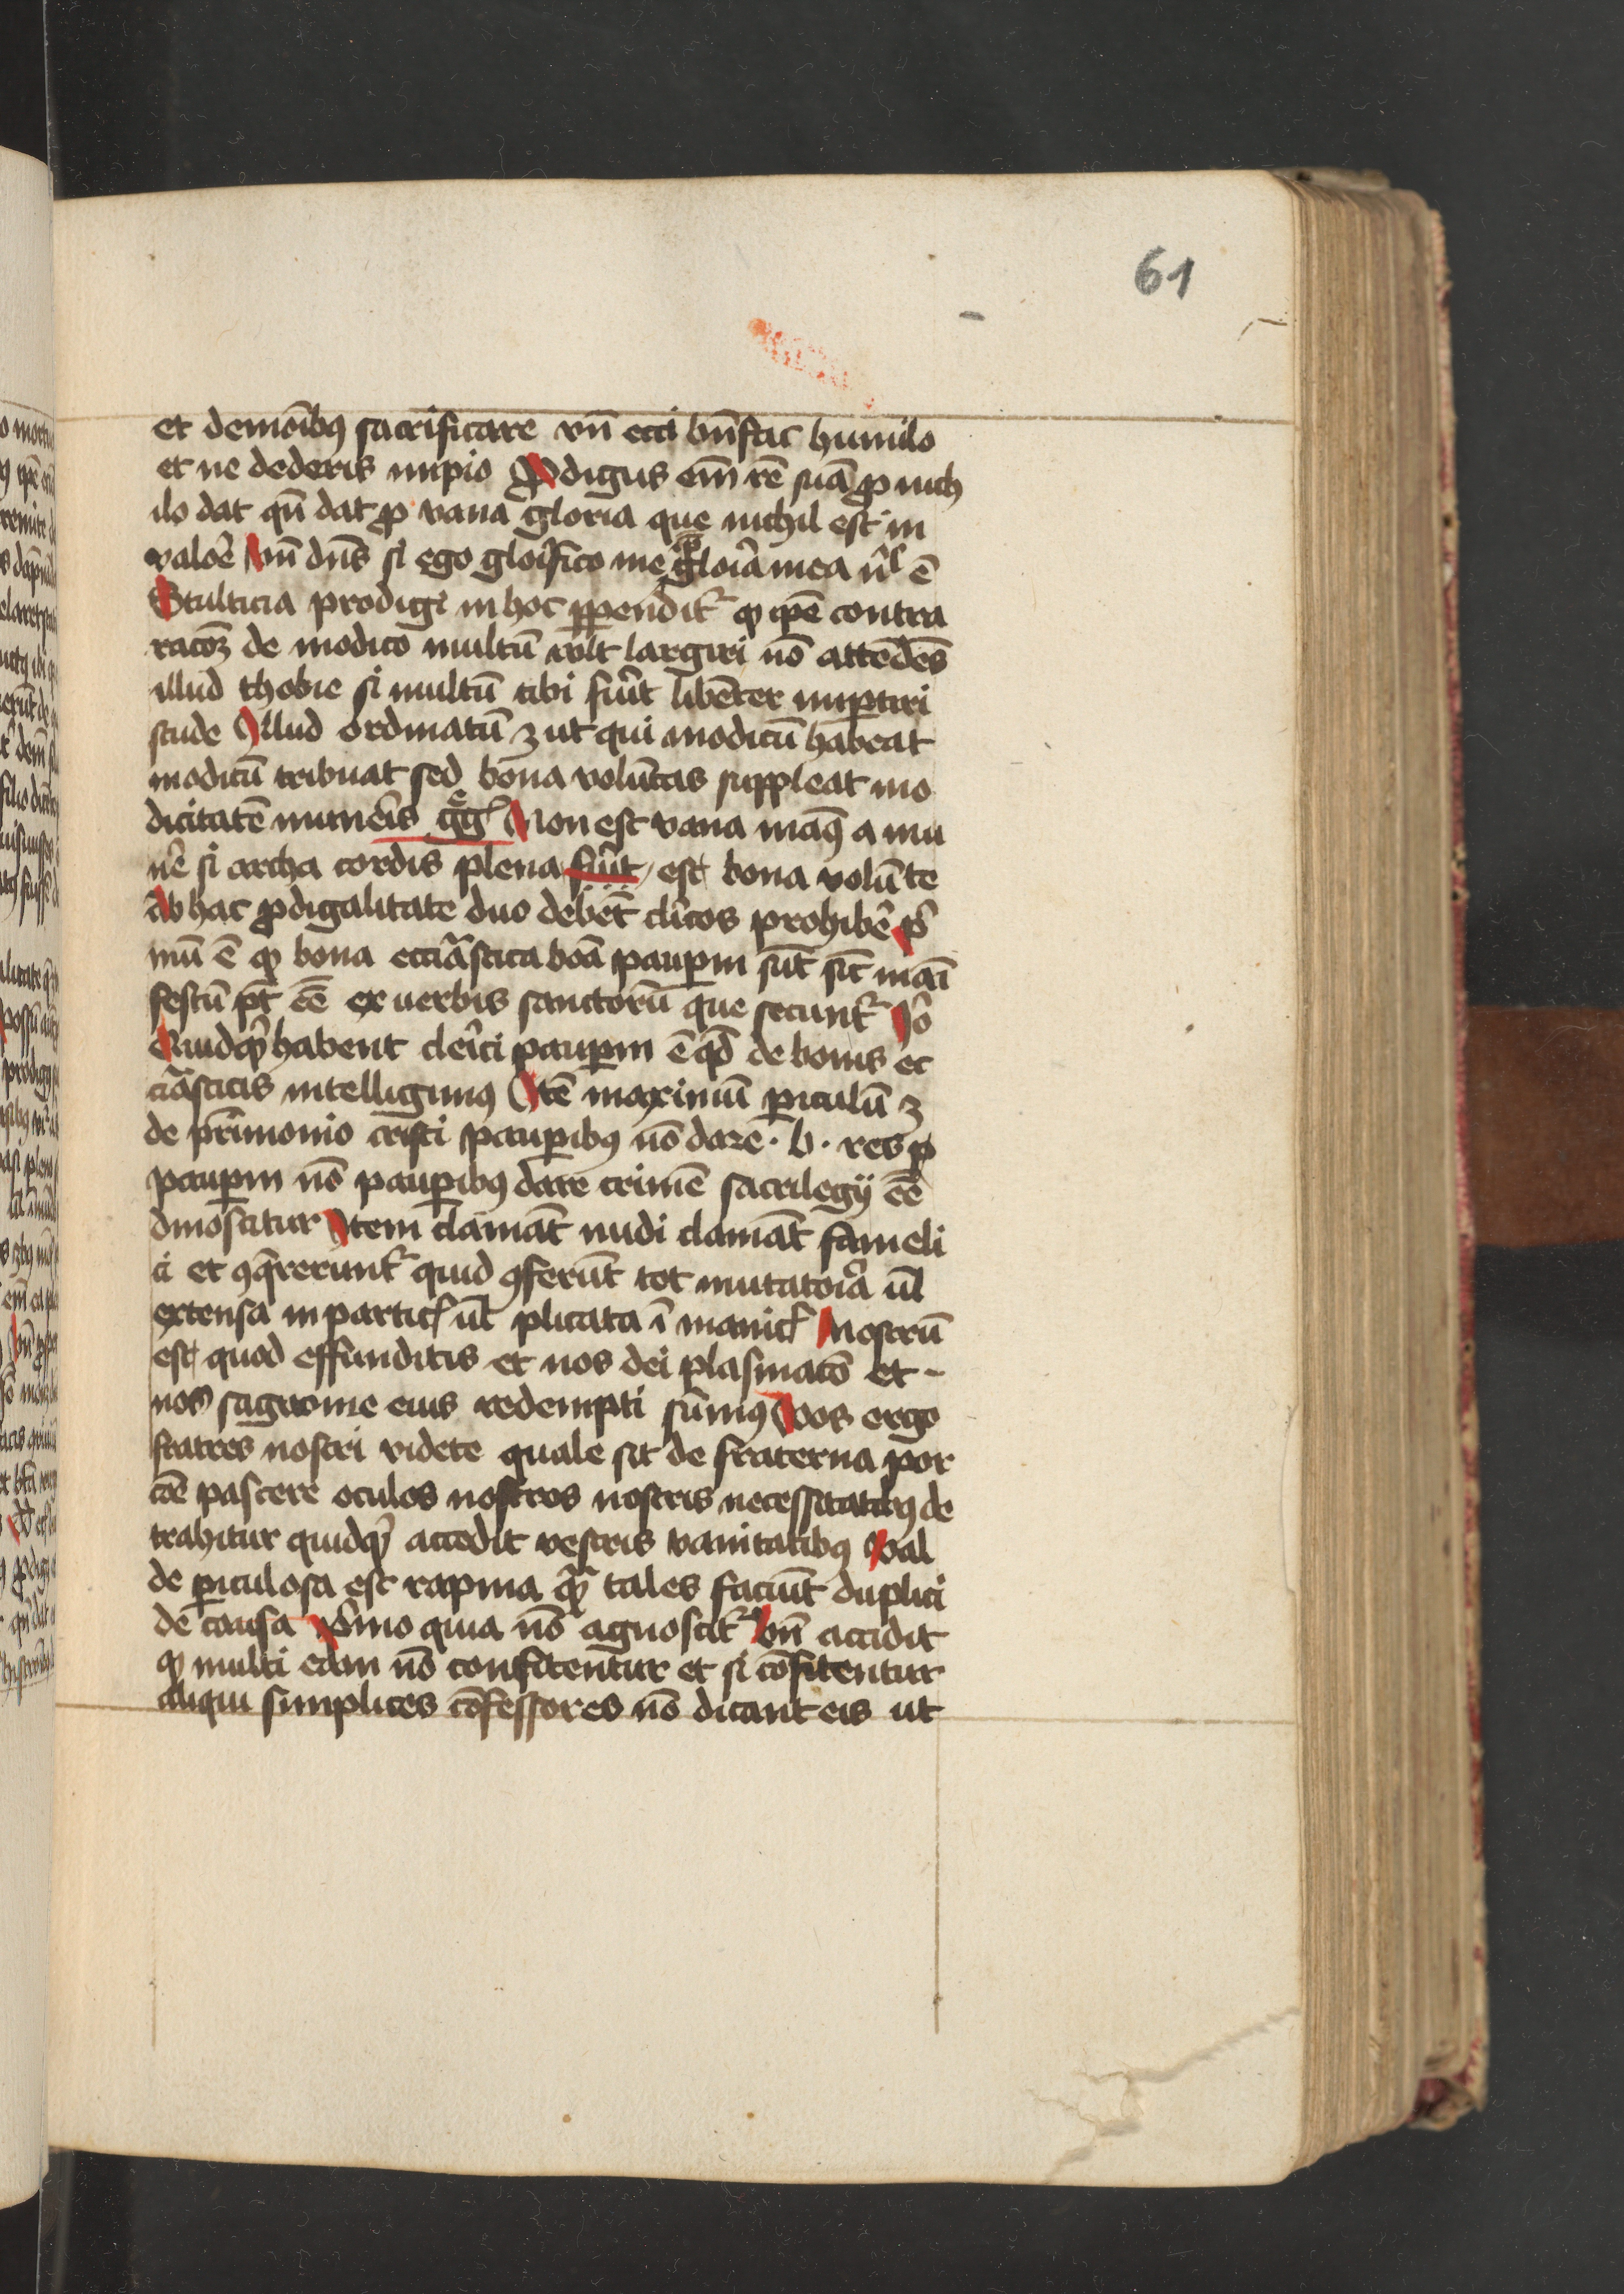 61
et demoībꝯ sacrificare vn̄ ecci bn̄fac humilo
et ne dederis impio Ꝓdigus em̄ rē suā ꝓ nich
ilo dat qn̄ dat ꝓ vana gloria que nichil est in
valoē vn̄ dn̄s si ego glori̇fico me gloīa mea nl̄ ē
Stulticia prodigi in hoc ꝑpendit᷑ ꝙ ip̄e contra
racoꝫ de modico multū vl̄t largiri nō attēdēs
illud thobie si multū tibi fūit libēter impartiri
stude Illud ordinatū ꝫ ut qui modicū habeat
modicū tribuat sed bona volūtas suppleat mo
dicitatē munēis gḡ Non est vana manꝯ a mu
nē si archa cordis plena fūit est bona volūte
Ab hac ꝓdigalitate duo debēt cl̄icos prohibē p̄i
mū ē ꝙ bona ecciāstica bōa pauꝑm sūt sic̄ māi
festū pt̄ eē ex uerbis sanctorū que secunt᷑ Jo
Quidqͥd habent cleīci pauꝑm ē qd̄ de bonis ec
ciāsticis intelligimꝯ Itē maximū ꝑiculū ꝫ
de pr̄imonio cristi pauꝑibꝯ nō dare · b · res p
pauꝑm nō pauꝑibꝯ dare crimē sacrilegij eē
dinoscitur Item clamāt nudi clamāt fameli
ci et ꝯqͣrerunt᷑ quid ꝯferūt tot mutatoīa ul̄
extensa in partic᷑ ul̄ plicata ī manic᷑ Nostrū
est quod effunditis et nos dei plasmacō et -
nos sagwine eius redempti sūmꝯ Vos ergo
fratres nostri videte quale sit de fraterna por
cōe pascere oculos nostros nostris necessitatibꝯ de
trahitur quidqͥd accedit vestris vanitatibꝯ Val
de ꝑiculosa est rapina qͣm tales faciūt duplici
de causa Pͥmo quia nō agnoscit᷑ vn̄ accidit
ꝙ multi eam nō confitentur et si cōfitentur
aliqui simplices cōfessores nō dicant eis ut